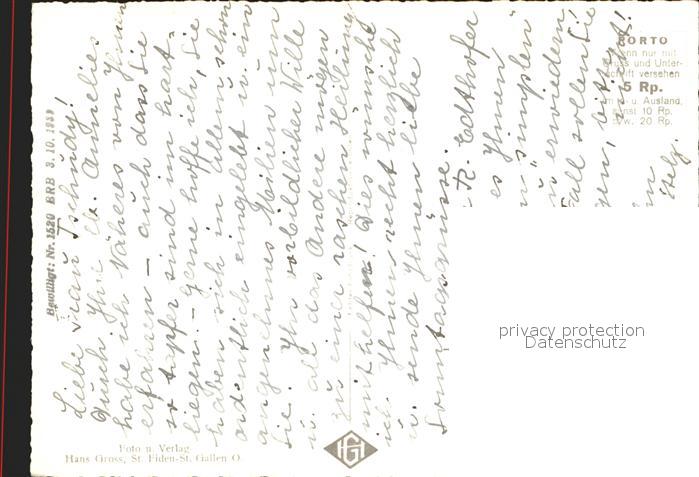 Liebe Frau Tschudy!
Durch Ihre lb. Annelies
habe ich Näheres von Ihnen
erfahren – auch dass Sie
so tapfer sind im hart-
liegen. – Gerne hoffe ich, Sie
haben sich in Allem schon
ordentlich eingelebt u. ein
angenehmes Milieu um
Sie. Ihr vorbildlicher Wille
u. all das Andere mögen
zu einer raschen Heilung
mithelfen! Dies wünsche
ich Ihnen recht herzlich
u. sende Ihnen liebe
Sonntagsgrüsse.
R. Edthofer
es Ihnen
"simplen"
zu erwiedern
Fall sollen Sie
bitte
PORTO
wenn nur mit
Gruss und Unter-
schrift versehen
5 Rp.
im In- u. Ausland,
sonst 10 Rp.
bzw. 20 Rp.
Bewilligt: Nr. 1520 BRB 3. 10. 1939
Foto u. Verlag
Hans Gross, St. Fiden-St. Gallen O.
HG
privacy protection
Datenschutz